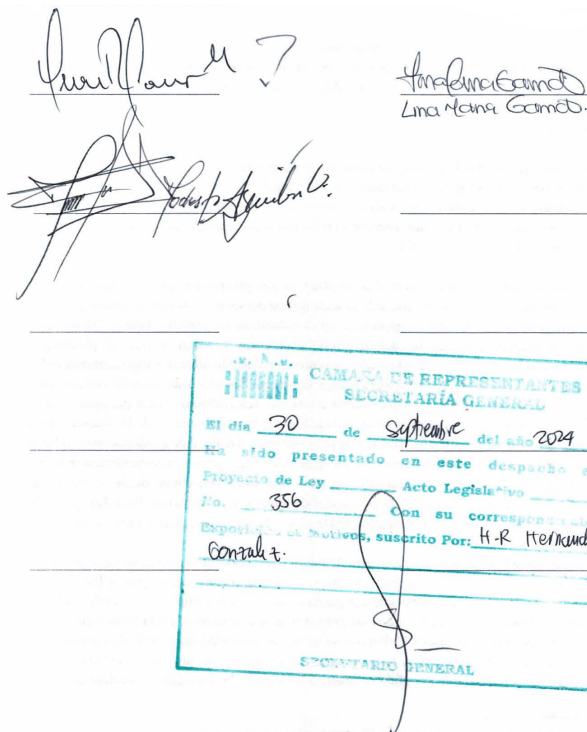 Lina Maria Garrido.
Modesto Aguilera V.
CAMARA DE REPRESENTANTES
SECRETARÍA GENERAL
El día 30 de septiembre del año 2024
Ha sido presentado en este despacho e
Proyecto de Ley Acto Legislativo
No. 356 Con su correspondiente
Exposición de Motivos, suscrito Por: H.R Hernando
Gonzalez.
SECRETARIO GENERAL